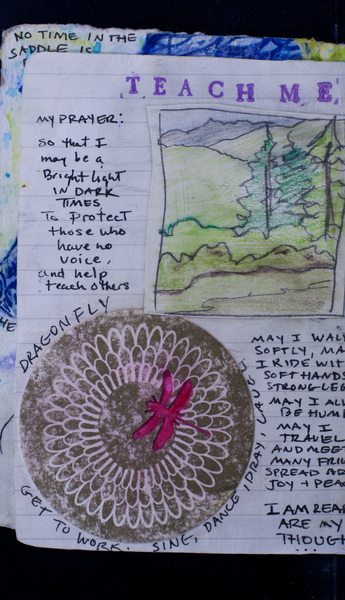 NO TIME IN THE
SADDLE IS
TEACH ME
MY PRAYER:
so that I
may be a
Bright light
IN DARK
TIMES
To Protect
those who
have no
voice,
and help
teach others
DRAGONFLY
GET TO WORK. SING, DANCE, PRAY, LAUGH
MAY I WALK
SOFTLY, MA
I RIDE WIT
SOFT HANDS
STRONG LEG
MAY I AL
BE HUM
MAY I
TRAVEL
AND MEET
MANY FRIE
SPREAD
JOY + PEAC
I AM REA
ARE MY
THOUGH
...